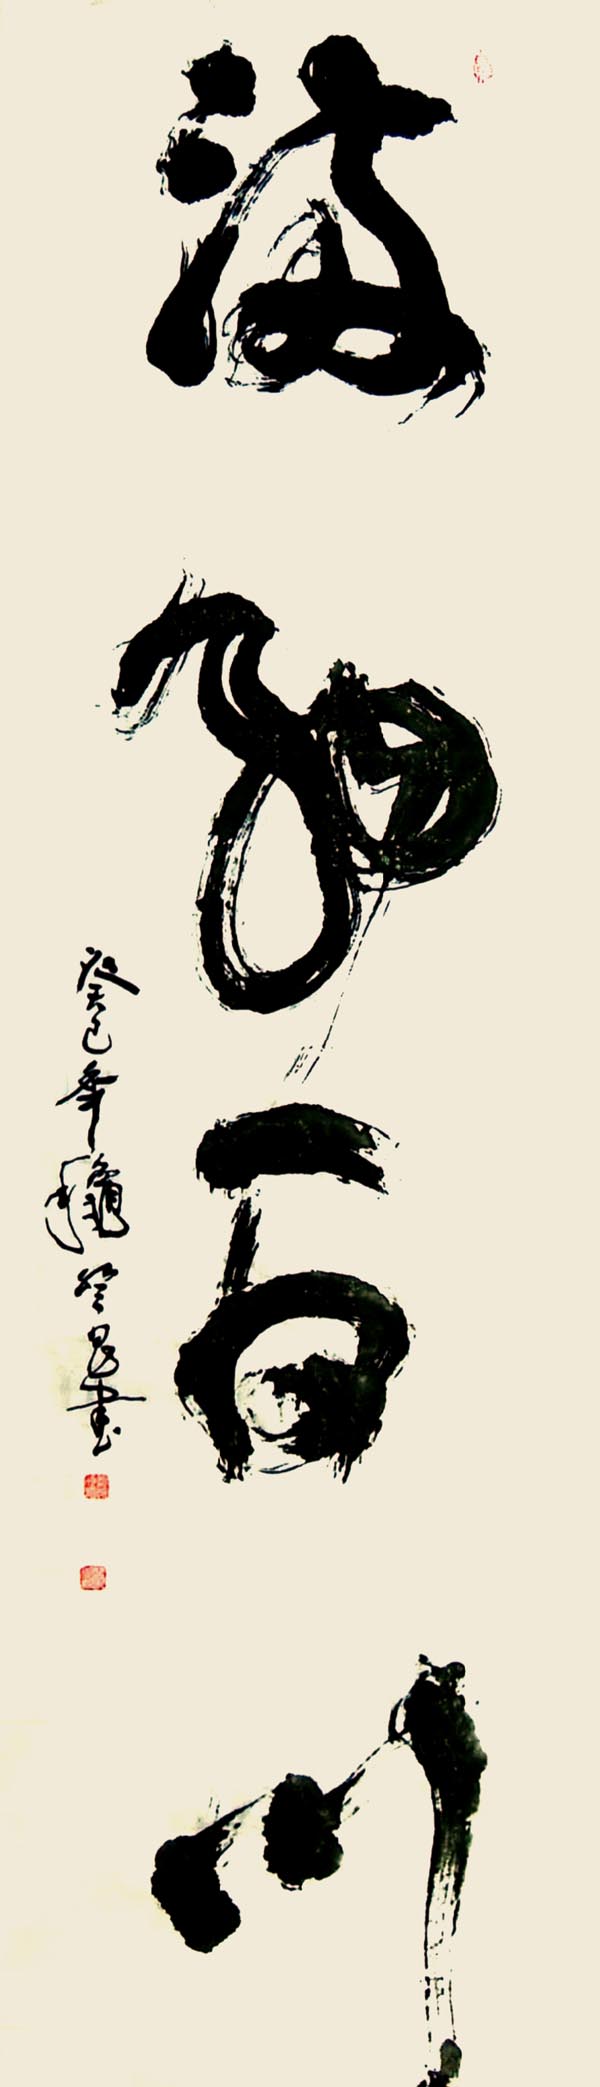 海納百川
癸巳年龝書